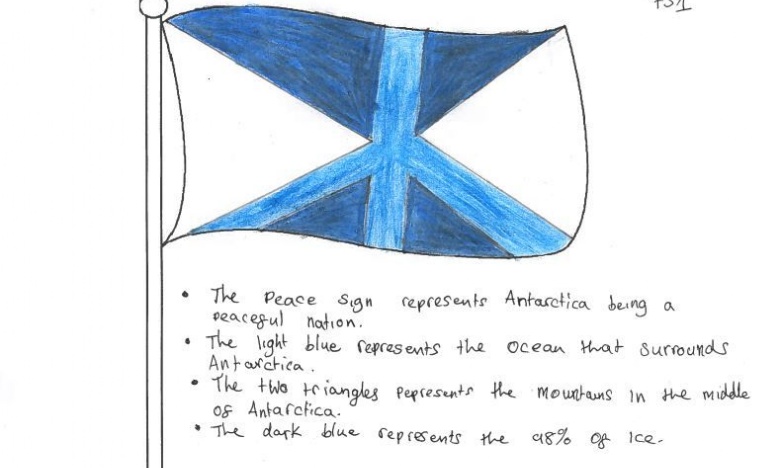 • The Peace Sign represents Antarctica being a
peaceful nation.
• The light blue represents the ocean that surrounds
Antarctica.
• The two triangles represents the mountains in the middle
of Antarctica.
• The dark blue represents the 98% of Ice.